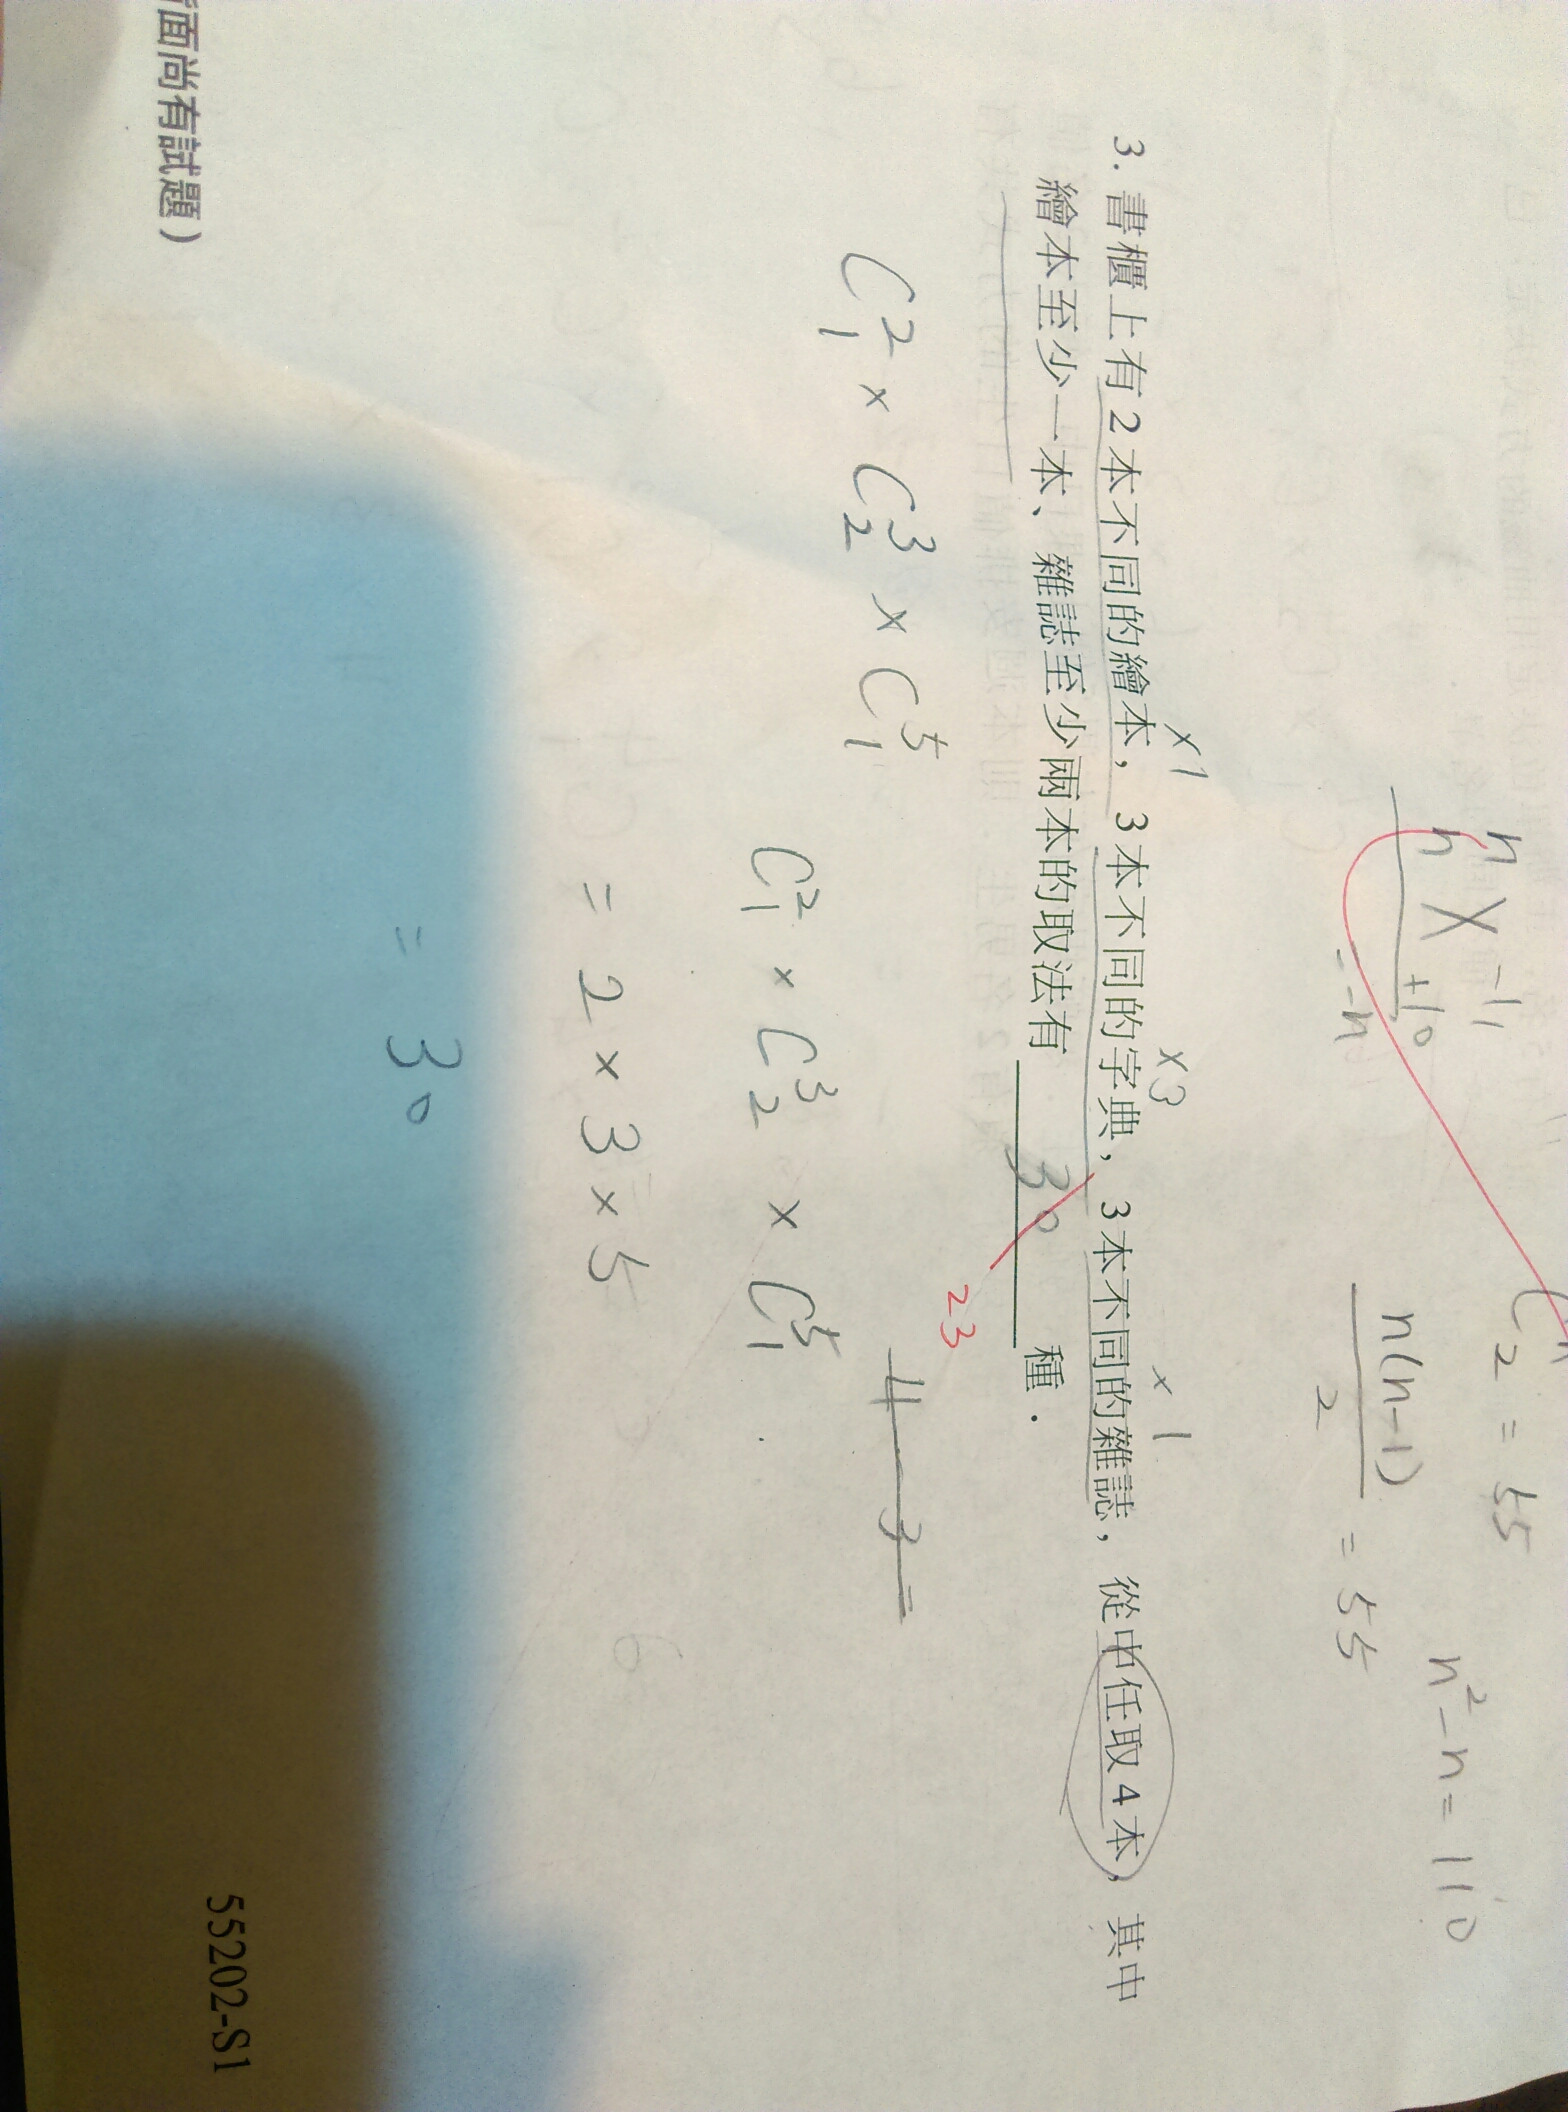 C₂ = 55
n² - n = 110
n -11
n × +10
= -n
n(n-1)
2
= 55
×1 ×3 ×1
3. 書櫃上有2本不同的繪本，3本不同的字典，3本不同的雜誌，從中任取4本，其中
繪本至少一本、雜誌至少兩本的取法有 30 種．
23
4 3 =
C²₁ × C³₂ × C⁵₁
C²₁ × C³₂ × C⁵₁
= 2 × 3 × 5
= 30
面尚有試題）
55202-S1